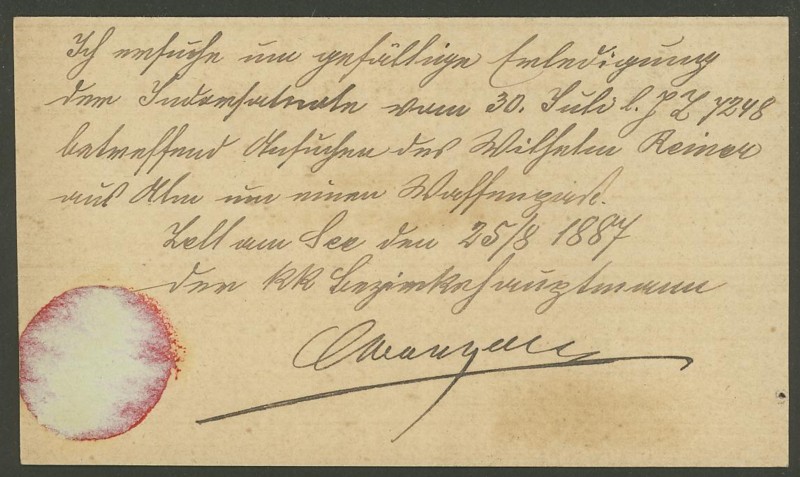 Ich ersuche um gefällige Erledigung
der Indorsatnote vom 30. Juli l. J. Z 7248
betreffend Ansuchen des Wilhelm Reiner
aus Alm um einen Waffenpaß.
Zell am See den 25/8 1887
der kk Bezirkshauptmann